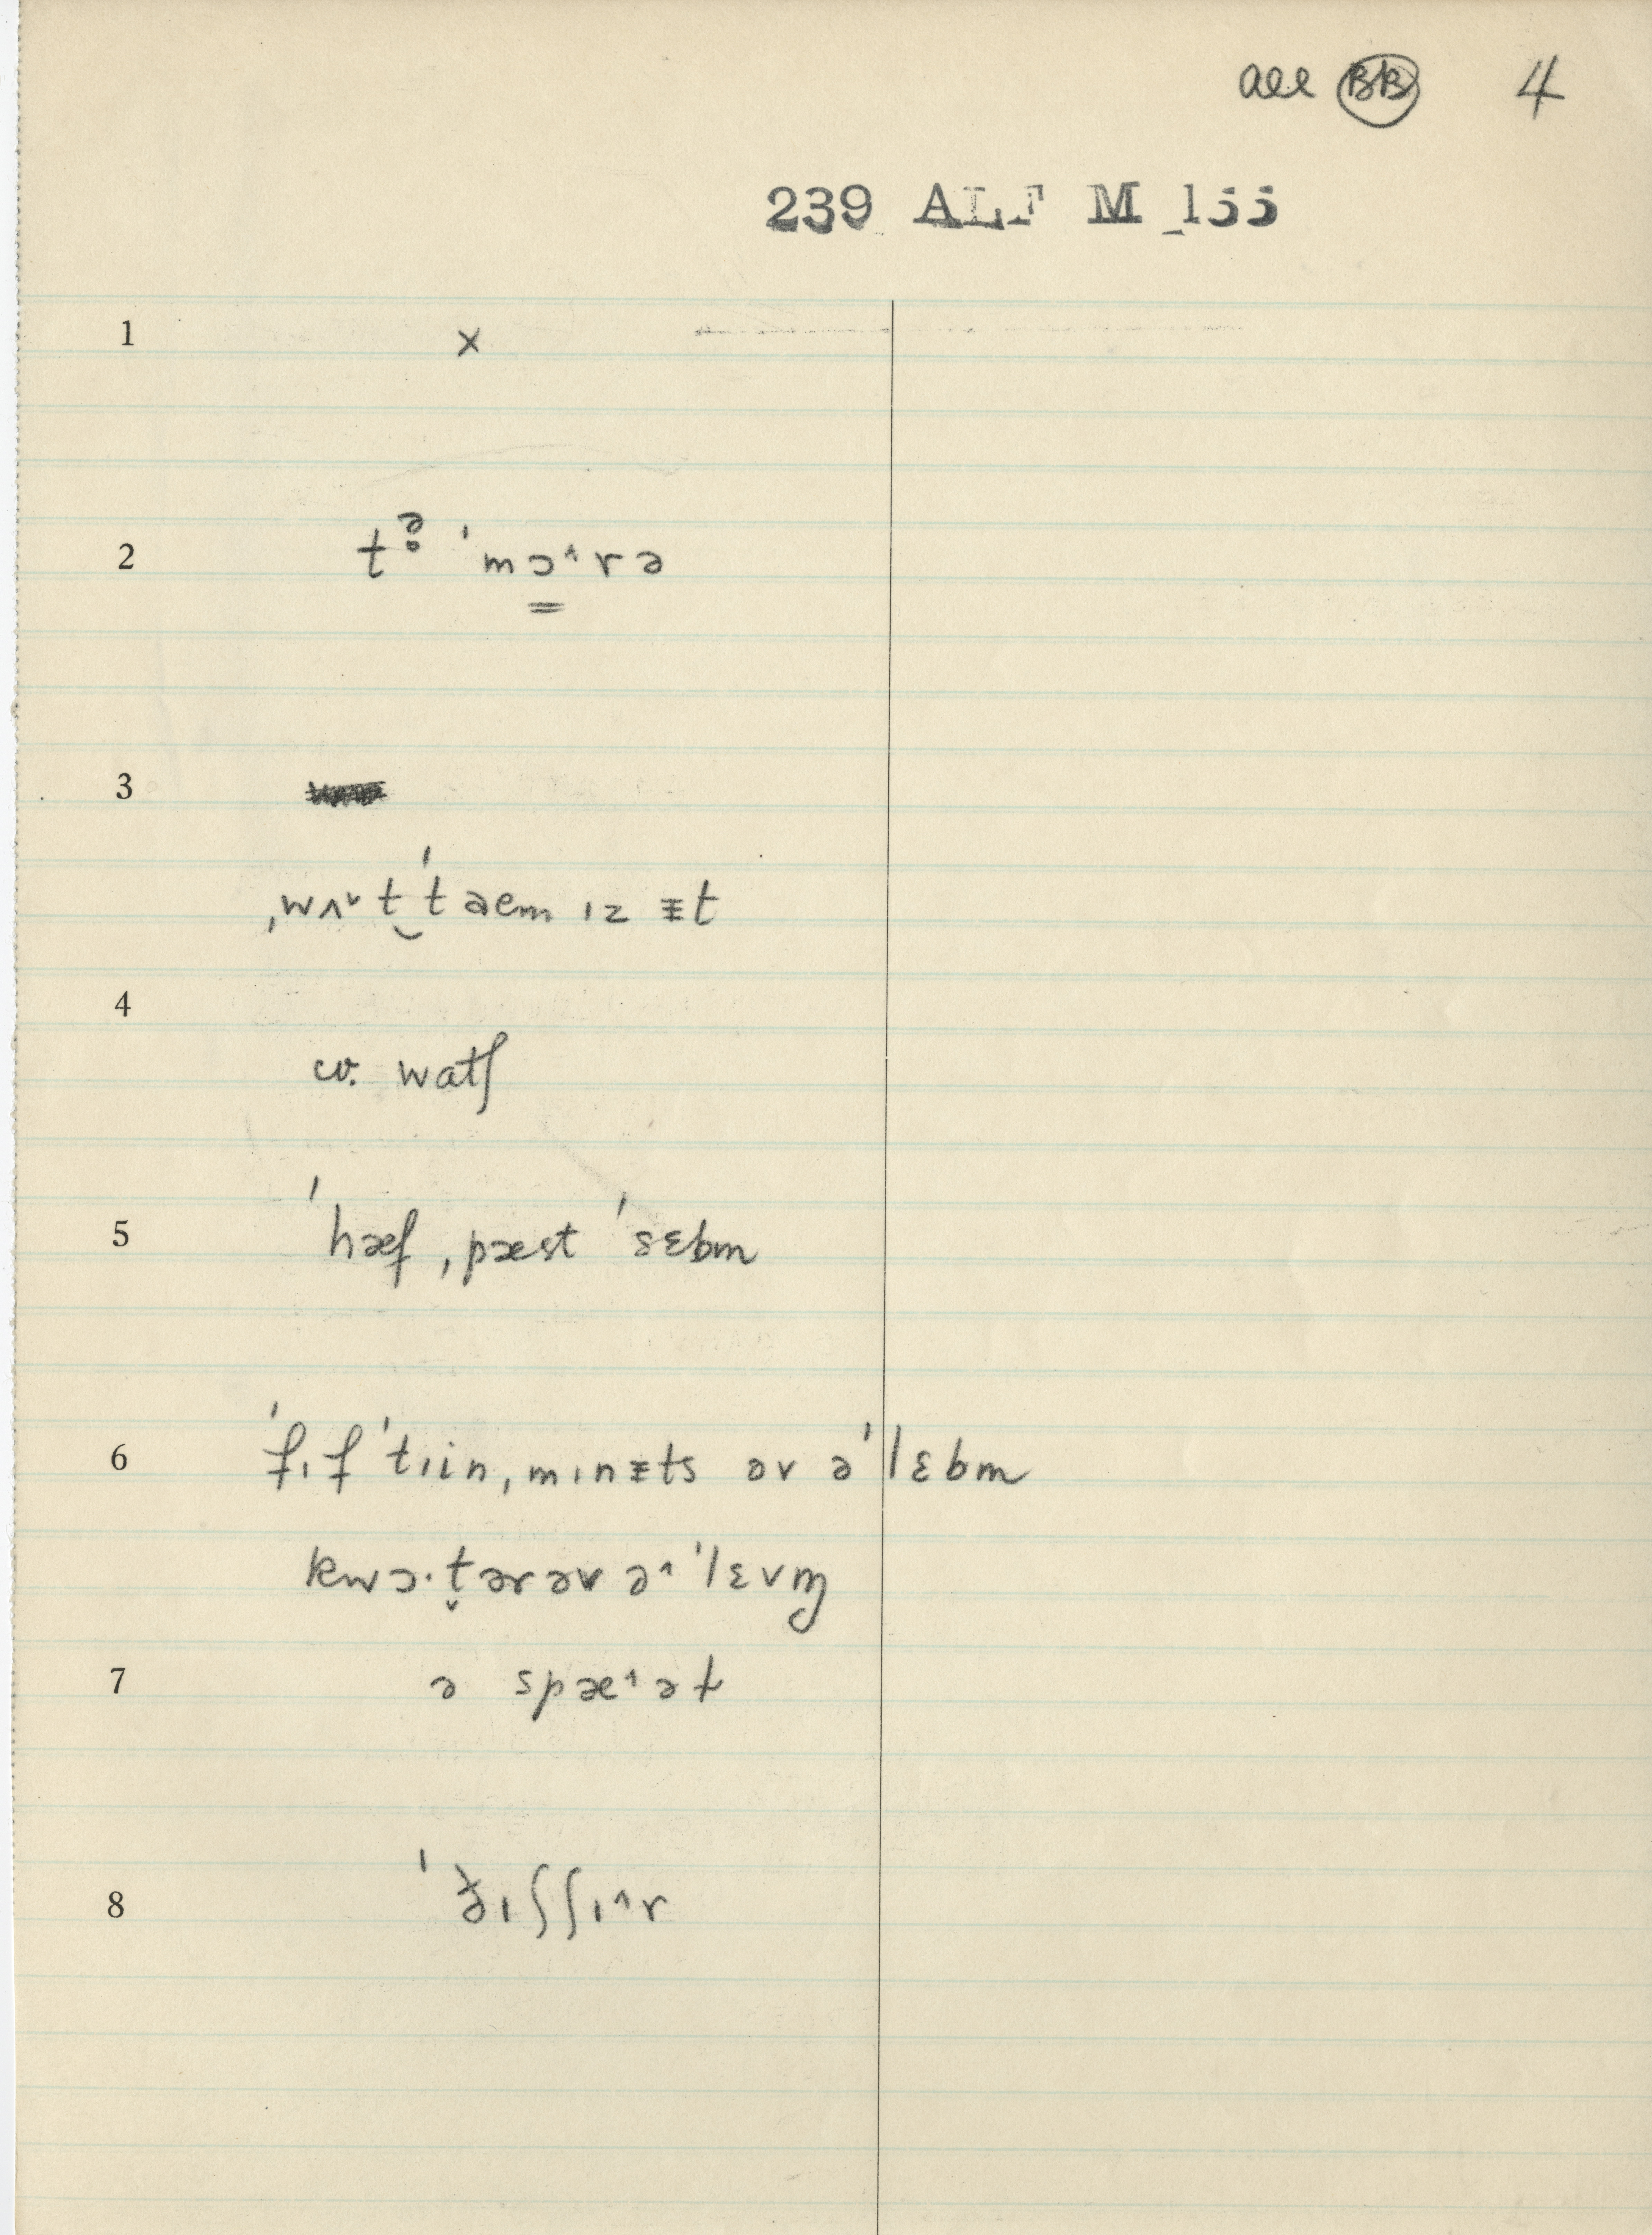 all BB 4
239 ALF M 155
1 ×
2 tə̥ ˈmɔ̳˄rə
3
ˌwʌ˅t‿ˈtaem ɪz ᵻt
4
cv. watʃ
5 ˈhæf ˌpæst ˈsɛbm
6 ˈfɪfˈtɪin ˌmɪnᵻts əv əˈlɛbm
kwɔ·t̬ərəv ə˄ˈlɛvɱ
7 ə spæ˄əɫ
8 ˈðɪʃʃɪ˄r